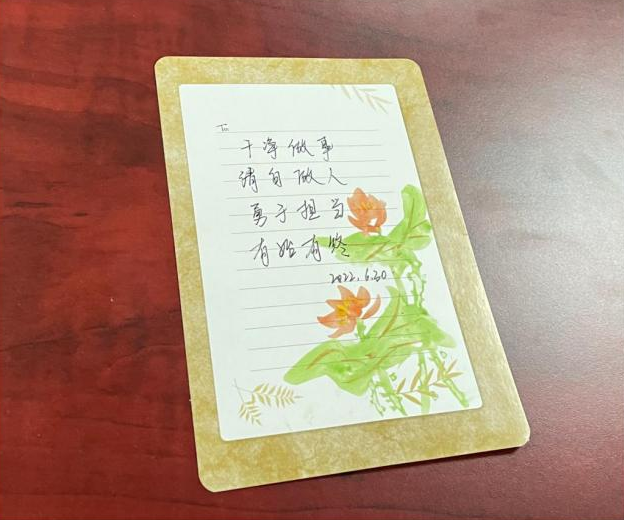 To:
干净做事
清白做人
勇于担当
有始有终
2022.6.30